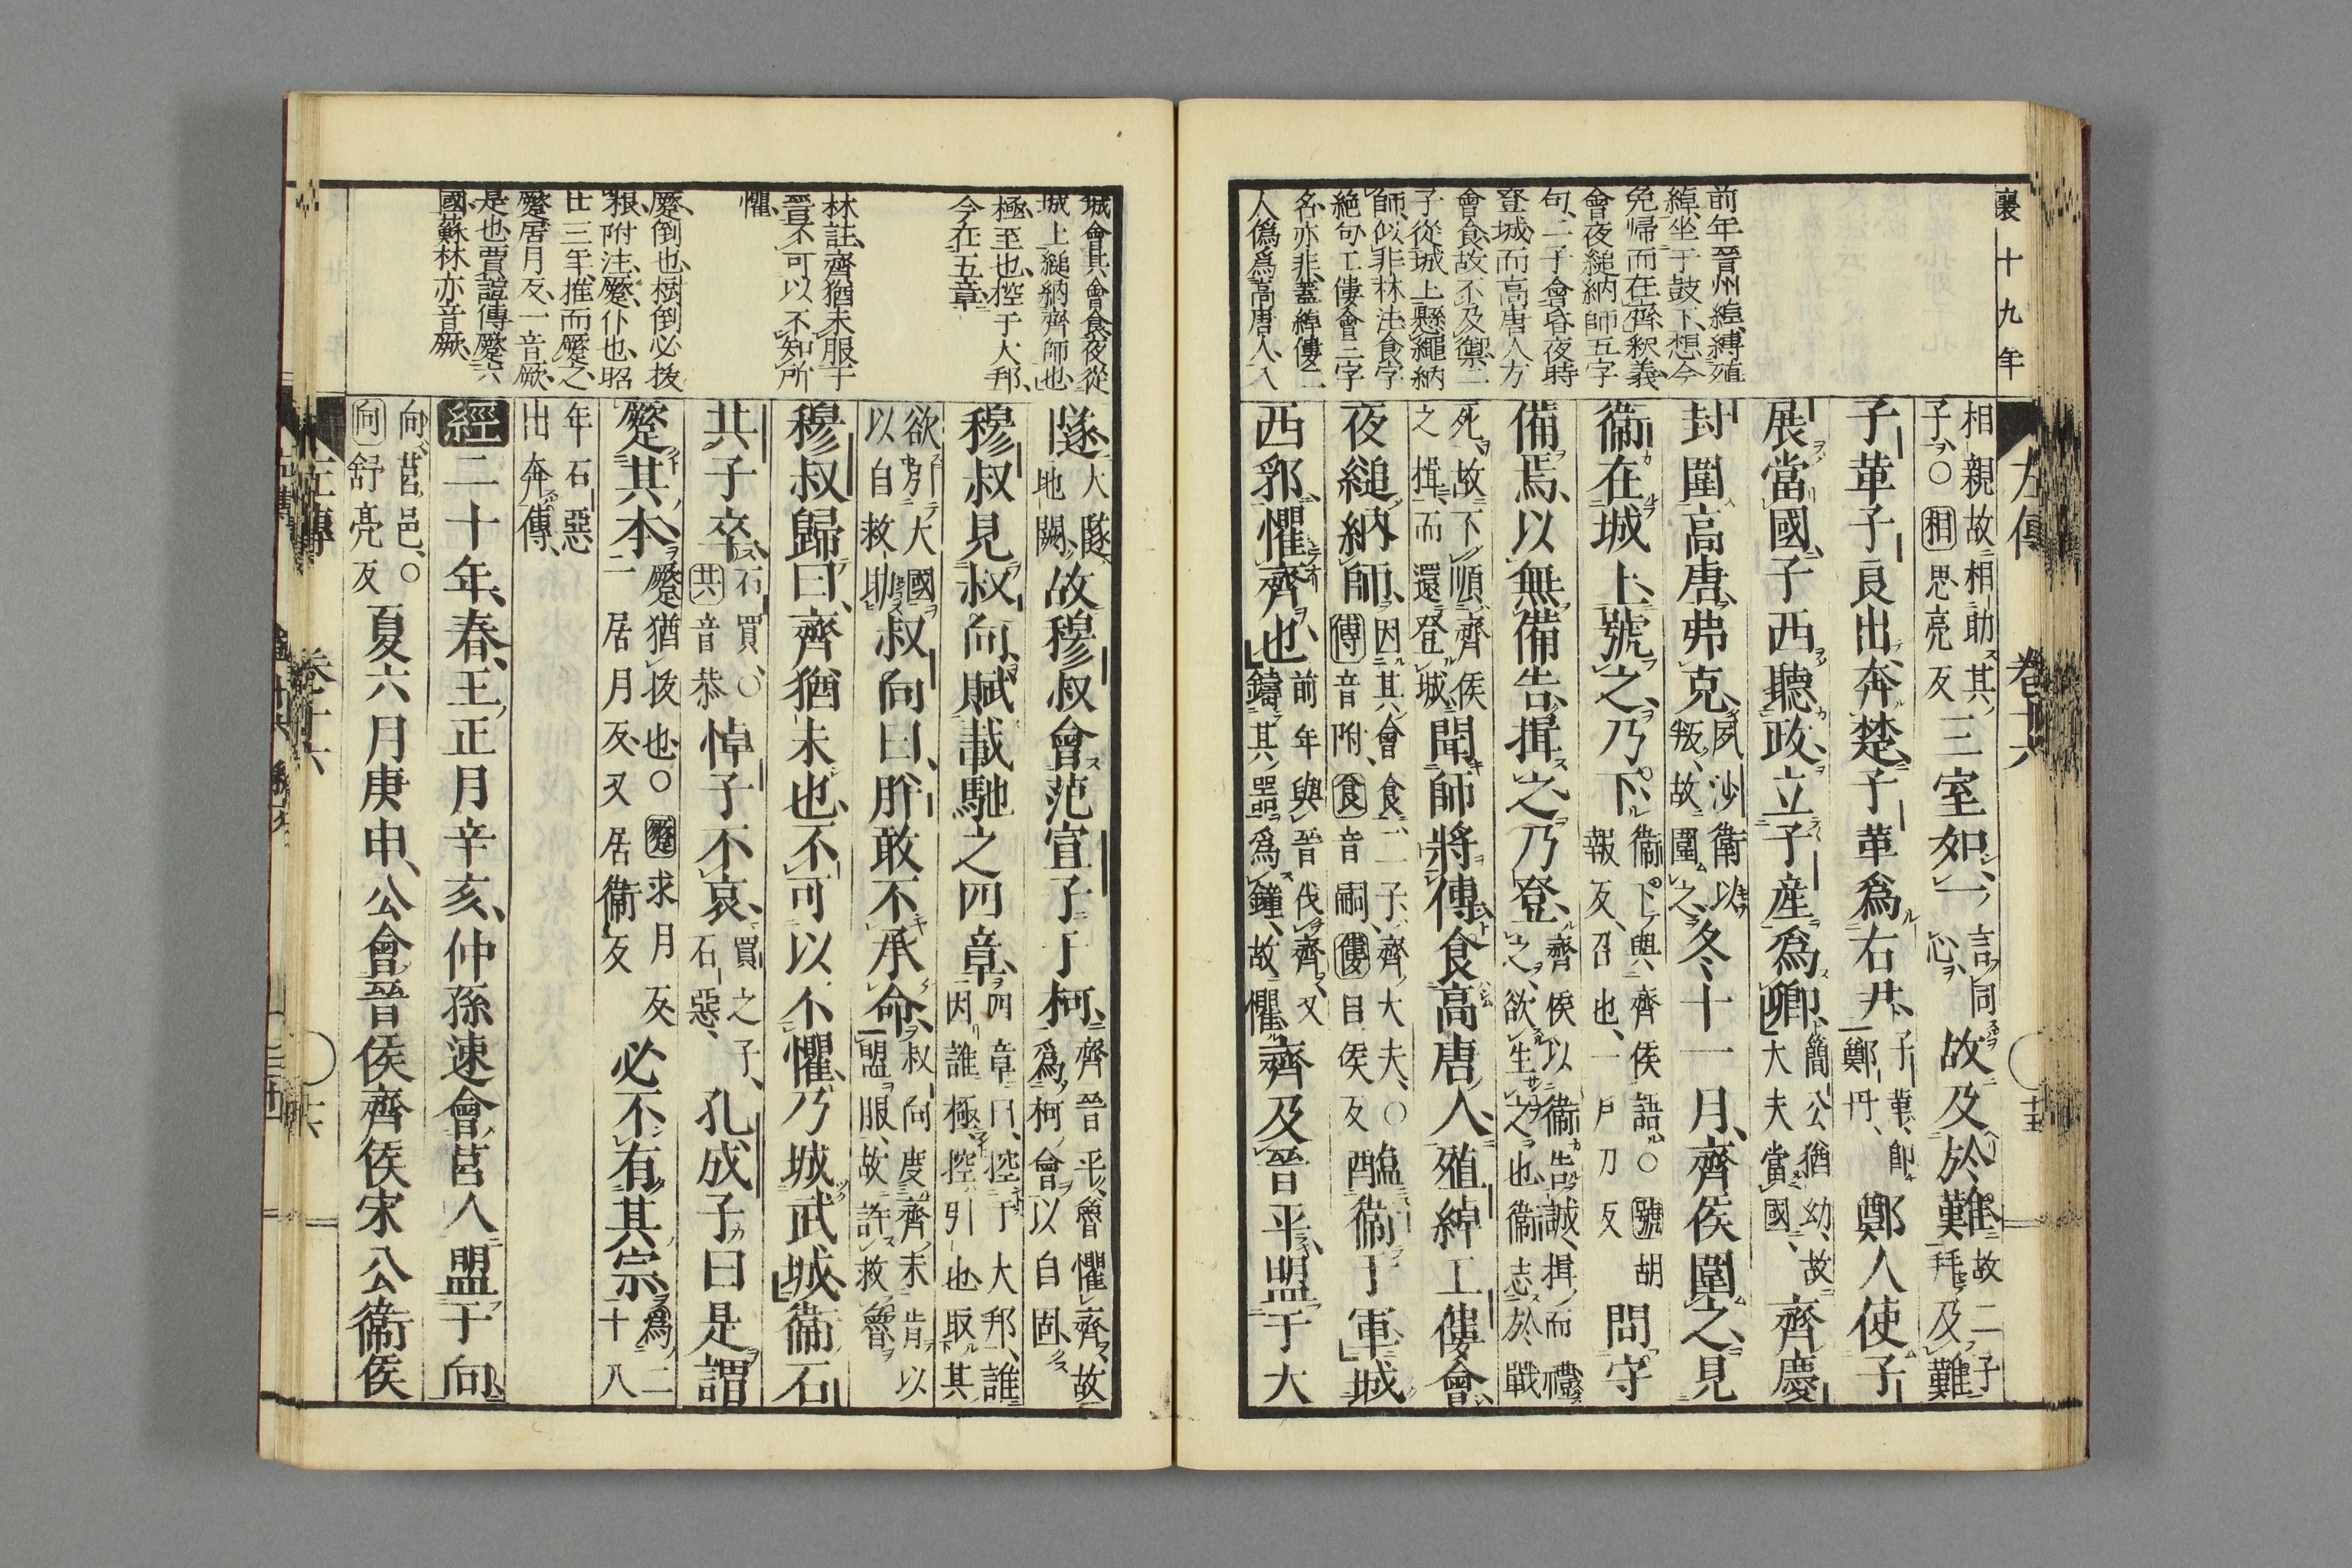 襄十九年
左傳 卷十六 十五
前年晉州綽縛殖
綽坐于鼓下想今
免歸而在齊釋義
會夜縋納師五字
句二子會昏夜時
登城而高唐人方
會食故不及禦二
子從城上懸繩納
師似非林注食字
絕句工僂會三字
名亦非蓋綽僂二
人僞爲高唐人入
相親故相助其
子○相思亮反
三室如一
言同
心
故及於難
故二子
拜及難
子革子良出奔楚子革爲右尹
子革卽
鄭丹
鄭人使子
展當國子西聽政立子産爲卿
簡公猶幼故
大夫當國
齊慶
封圍高唐弗克
夙沙衛以
叛故圍之
冬十一月齊侯圍之見
衞在城上號之乃下
衞下與齊侯語○號胡
報反召也一戶刀反
問守
備焉以無備告揖之乃登
齊侯以衞告誠揖而禮
之欲生之也衞志於戰
死故不順齊侯
之揖而還登城
聞師將傅食高唐人殖綽工僂會
夜縋納師
因其會食二子齊大夫○
傅音附食音嗣僂力侯反
醢衞于軍城
西郛懼齊也
前年與晉伐齊又
鑄其器爲鐘故懼
齊及晉平盟于大
城會其會食夜從
城上縋納齊師也
極至也控于大邦
今在五章
林註齊猶未服于
晉不可以不知所
懼
蹷倒也樹倒必拔
根附注蹷仆也昭
廿三年推而蹷之
蹷居月反一音厥
是也賈誼傳蹷六
國蘇林亦音厥
隧
大隧
地闕
故穆叔會范宣子于柯
齊晉平魯懼齊故
爲柯會以自固
穆叔見叔向賦載馳之四章
四章曰控于大邦誰
因誰極控引也取其
欲引大國
以自救助
叔向曰肸敢不承命
叔向度齊未肯以
盟服故許救魯
穆叔歸曰齊猶未也不可以不懼乃城武城衞石
共子卒
石買○
共音恭
悼子不哀
買之子
石惡
孔成子曰是謂
蹷其本
蹷猶拔也○蹷求月反
一居月反又居衞反
必不有其宗
爲二十八
年石惡
出奔傳
經二十年春王正月辛亥仲孫速會莒人盟于向
向莒邑○
向舒亮反
夏六月庚申公會晉侯齊侯宋公衞侯
左傳 卷十六 十六